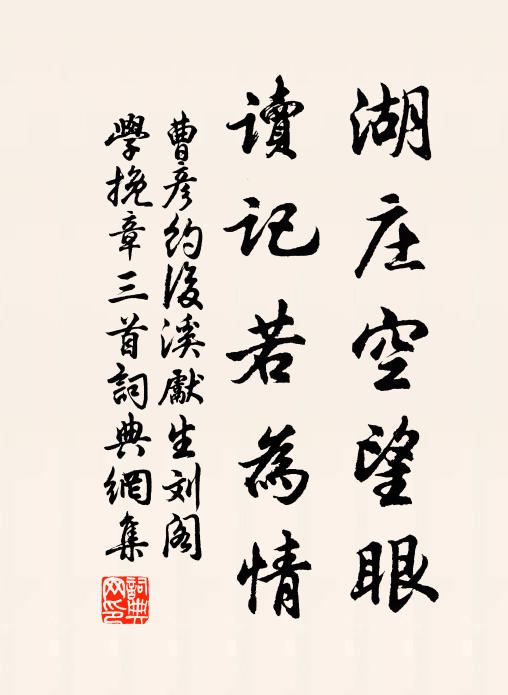 湖庄空望眼
讀記若為情
曹彥約後溪獻生刘阁
學挽章三首詞典網集
詞典网印